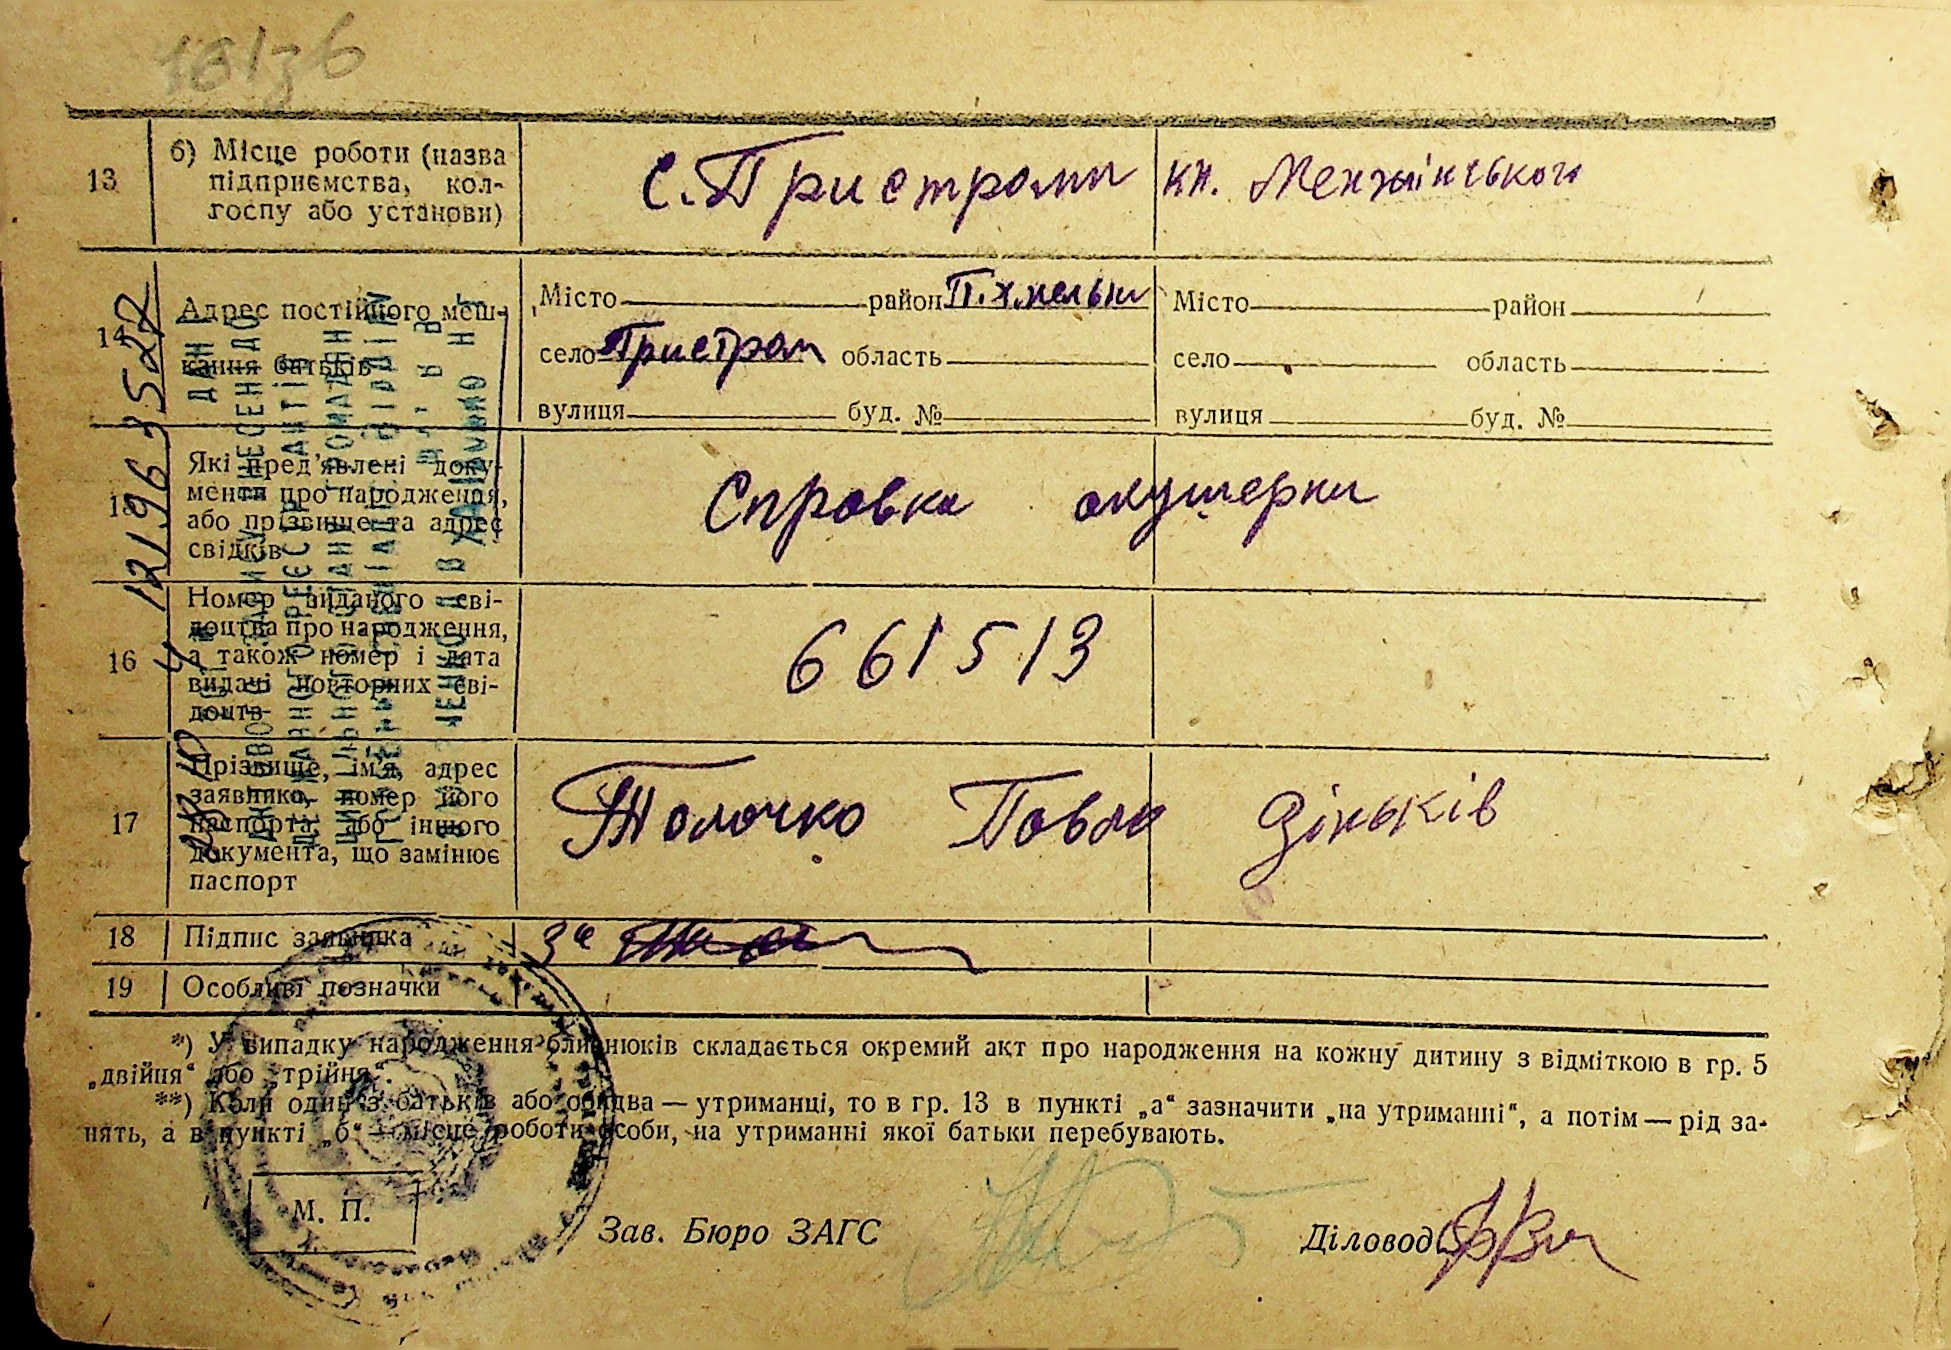 13
б) Місце роботи (назва
підприємства, кол-
госпу або установи)
с. Пристроми
кл. Менжінського
14
Адрес постійного меш-
кання батьків
Місто район П. Хмельн
село Пристром область
вулиця буд. №
Місто район
село область
вулиця буд. №
15
Які пред'явлені доку-
менти про народження,
або прізвище та адрес
свідків
Справка акушерки
16
Номер виданого сві-
доцтва про народження,
а також номер і дата
видачі повторних сві-
доцтв
661513
17
Прізвище, ім'я, адрес
заявника, номер його
паспорта, або іншого
документа, що замінює
паспорт
Толочко Павло Зіньків
18
Підпис заявника
за
19
Особливі позначки
*) У випадку народження близнюків складається окремий акт про народження на кожну дитину з відміткою в гр. 5
„двійня“ або „трійня“.
**) Коли один з батьків або обидва — утриманці, то в гр. 13 в пункті „а“ зазначити „на утриманні“, а потім — рід за-
нять, а в пункті „б“ — місце роботи особи, на утриманні якої батьки перебувають.
М. П.
Зав. Бюро ЗАГС
Діловод